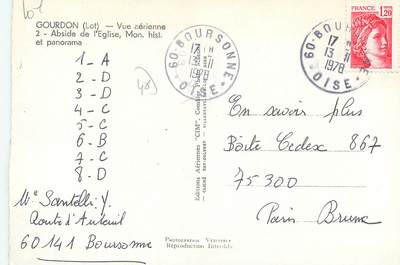 GOURDON (Lot) — Vue aérienne
2 - Abside de l'Eglise, Mon. hist.
et panorama.
1 - A
2 - D
3 - D
4 - C
5 - C
6 - B
7 - C
8 - D
Santelli Y.
Route d'Auteuil
60141 Boursonne
Editions Aériennes "CIM"
Photographie Véritable
60 - BOURSONNE
17 H
13 - 11
1978
OISE
60 - BOURSONNE
17 H
13 - 11
1978
OISE
FRANCE
1,20
En savoir plus
Boîte Cedex 867
75300
Paris Brune